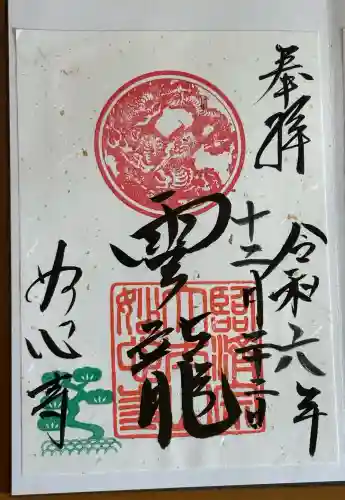 奉拝
令和六年
十二月二十二日
雲龍
妙心寺